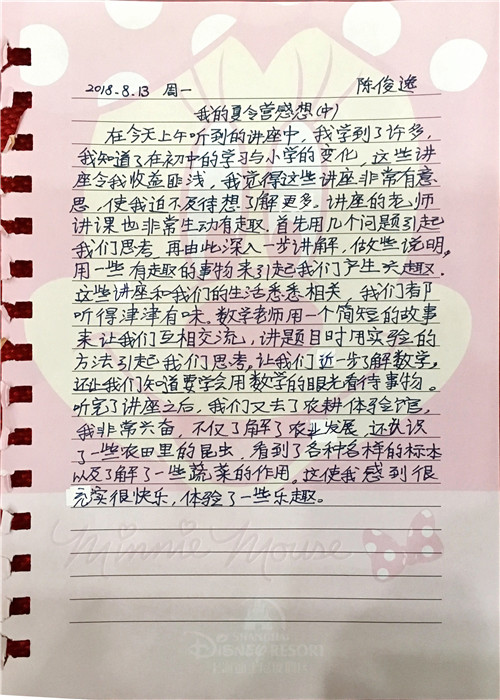 2018.8.13 周一 陈俊逸
我的夏令营感想(中)
在今天上午听到的讲座中,我学到了许多,
我知道了在初中的学习与小学的变化,这些讲
座令我收益匪浅,我觉得这些讲座非常有意
思,使我迫不及待想了解更多。讲座的老师
讲课也非常生动有趣,首先用几个问题引起
我们思考,再由此深入一步讲解,做些说明,
用一些有趣的事物来引起我们产生兴趣.
这些讲座和我们的生活悉悉相关,我们都
听得津津有味。数学老师用一个简短的故事
来让我们互相交流,讲题目时用实验的
方法引起我们思考,让我们近一步了解数学,
还让我们知道要学会用数学的眼光看待事物。
听完了讲座之后,我们又去了农耕体验馆,
我非常兴奋,不仅了解了农业发展,还认识
了一些农田里的昆虫,看到了各种各样的标本
以及了解了一些蔬菜的作用,这使我感到很
充实很快乐,体验了一些乐趣。
Minnie Mouse
SHANGHAI
DISNEY RESORT